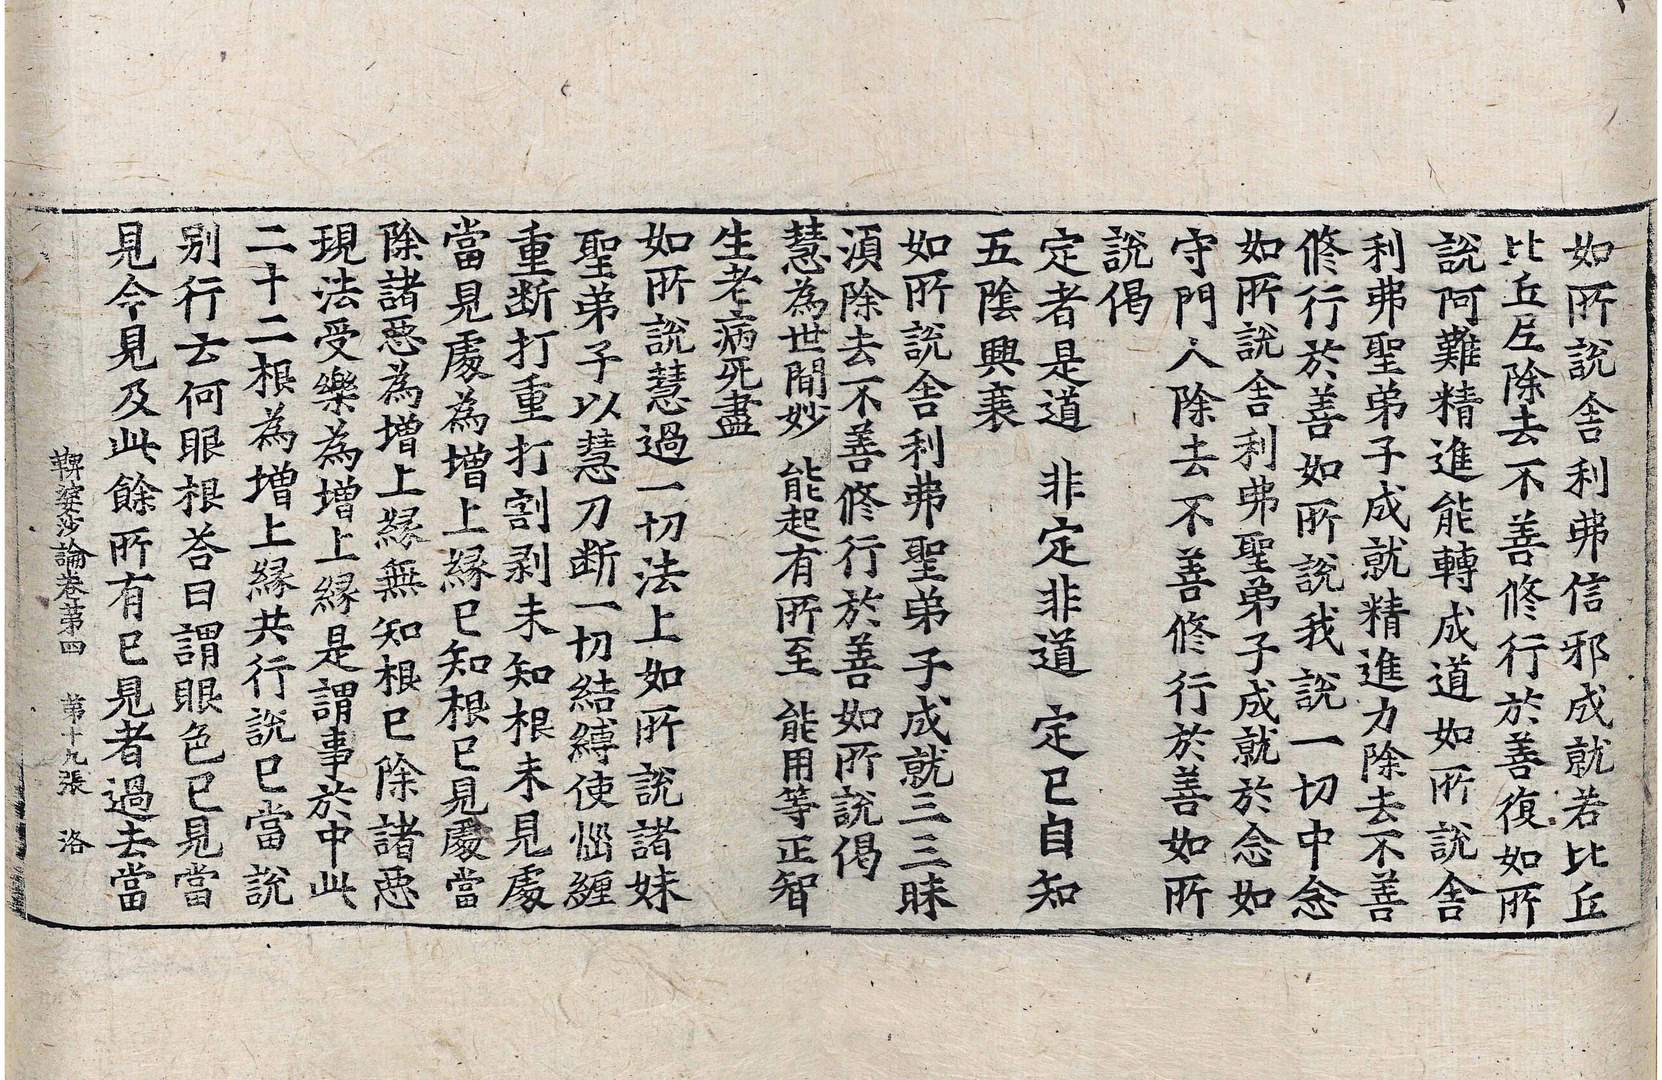 如所說舍利弗信邪成就若比丘
比丘尼除去不善修行於善復如所
說阿難精進能轉成道如所說舍
利弗聖弟子成就精進力除去不善
修行於善如所說我說一切中念
如所說舍利弗聖弟子成就於念如
守門人除去不善修行於善如所
說偈
定者是道 非定非道 定已自知
五陰興衰
如所說舍利弗聖弟子成就三三昧
須除去不善修行於善如所說偈
慧為世間妙 能起有所至 能用等正智
生老病死盡
如所說慧過一切法上如所說諸妹
聖弟子以慧刀斷一切結縛使惱纏
重斷打重打割剥未知根未見處
當見處為增上緣已知根已見處當
除諸惡為增上緣無知根已除諸惡
現法受樂為增上緣是謂事於中此
二十二根為增上緣共行說已當說
別行云何眼根荅曰謂眼色已見當
見今見及此餘所有已見者過去當
鞞婆沙論卷第四 第十九張 洛